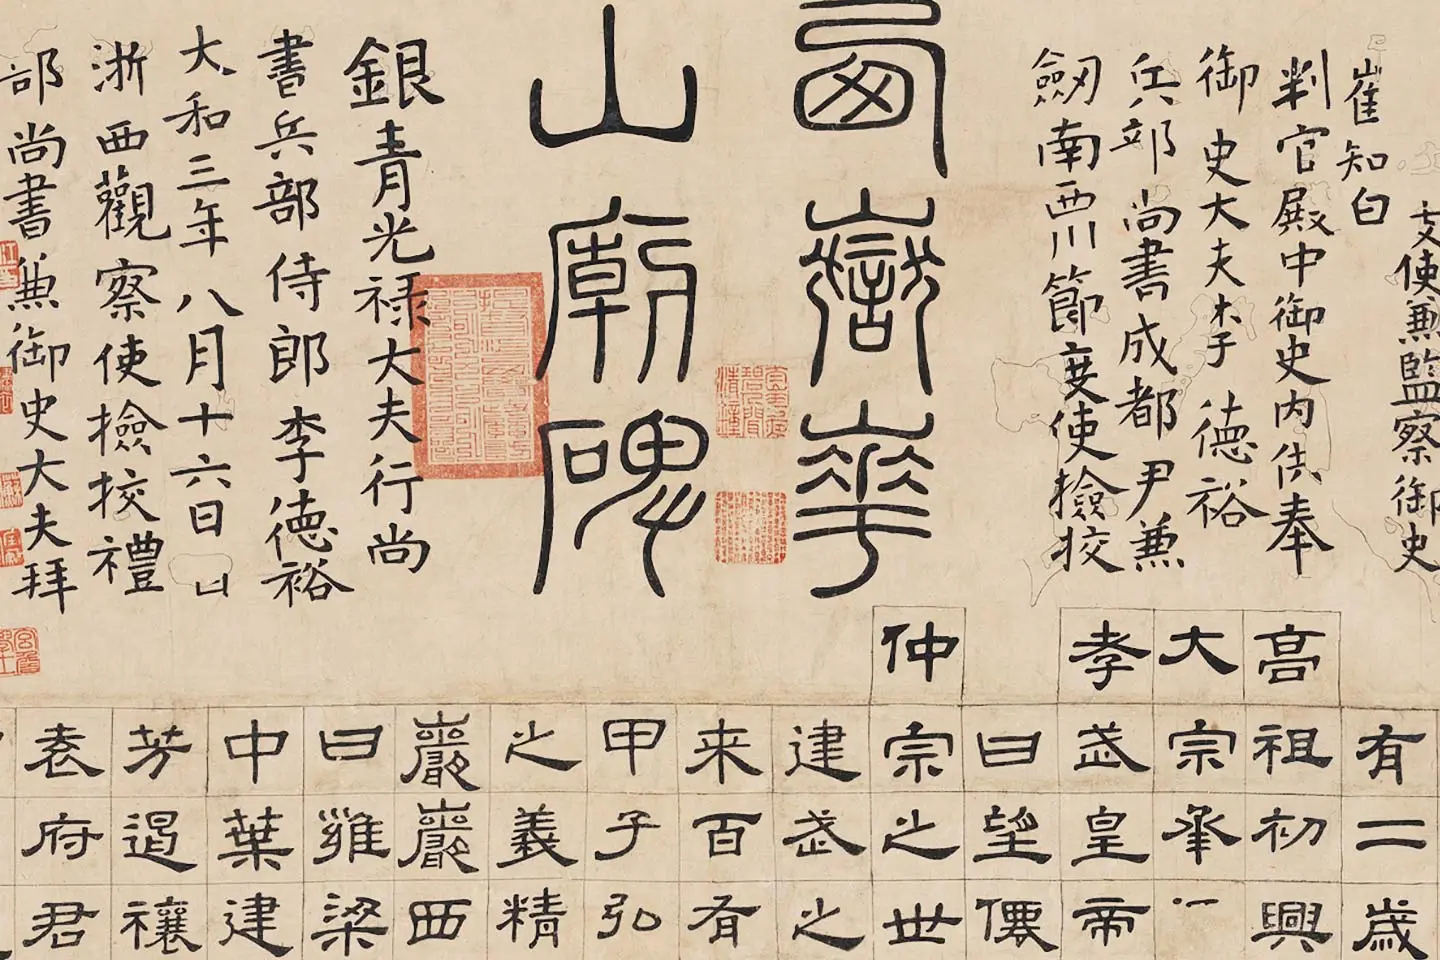 支使兼監察御史
崔知白
判官殿中御史内供奉
御史大夫李德裕
兵部尚書成都尹兼
劒南西川節度使撿挍
西嶽華
山廟碑
銀青光禄大夫行尚
書兵部侍郎李德裕
大和三年八月十六日
浙西觀察使撿挍禮
部尚書兼御史大夫拜
有二歲
高祖初興
大宗承
孝武皇帝
曰望僊
仲宗之世
建武之
来百有
甲子弘
之義精
巖巖西
曰雍梁
中葉建
芳遏禳
袁府君